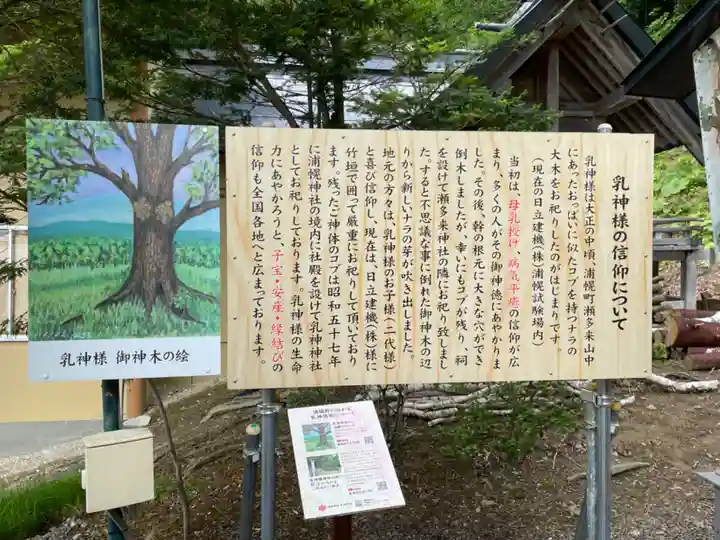 乳神様の信仰について
乳神様は大正の中頃、浦幌町瀬多来山中
にあったおっぱいに似たコブを持つナラの
大木をお祀りしたのがはじまりです。
(現在の日立建機(株)浦幌試験場内)
当初は、母乳授け、病気平癒の信仰が広
まり、多くの人がその御神徳にあやかりま
した。その後、幹の根元に大きな穴ができ
倒木しましたが、幸いにもコブが残り、祠
を設けて瀬多来神社の隣にお祀り致しまし
た。すると不思議な事に倒れた御神木の辺
りから新しいナラの芽が吹き出しました。
地元の方々は、乳神様のお子様(二代様)
と喜び信仰し、現在は、日立建機(株)様に
竹垣で囲って厳重にお祀りして頂いており
ます。残ったご神体のコブは昭和五十七年
に浦幌神社の境内に社殿を設けて乳神神社
としてお祀りしております。乳神様の生命
力にあやかろうと、子宝・安産・縁結びの
信仰も全国各地へと広まっております。
乳神様 御神木の絵